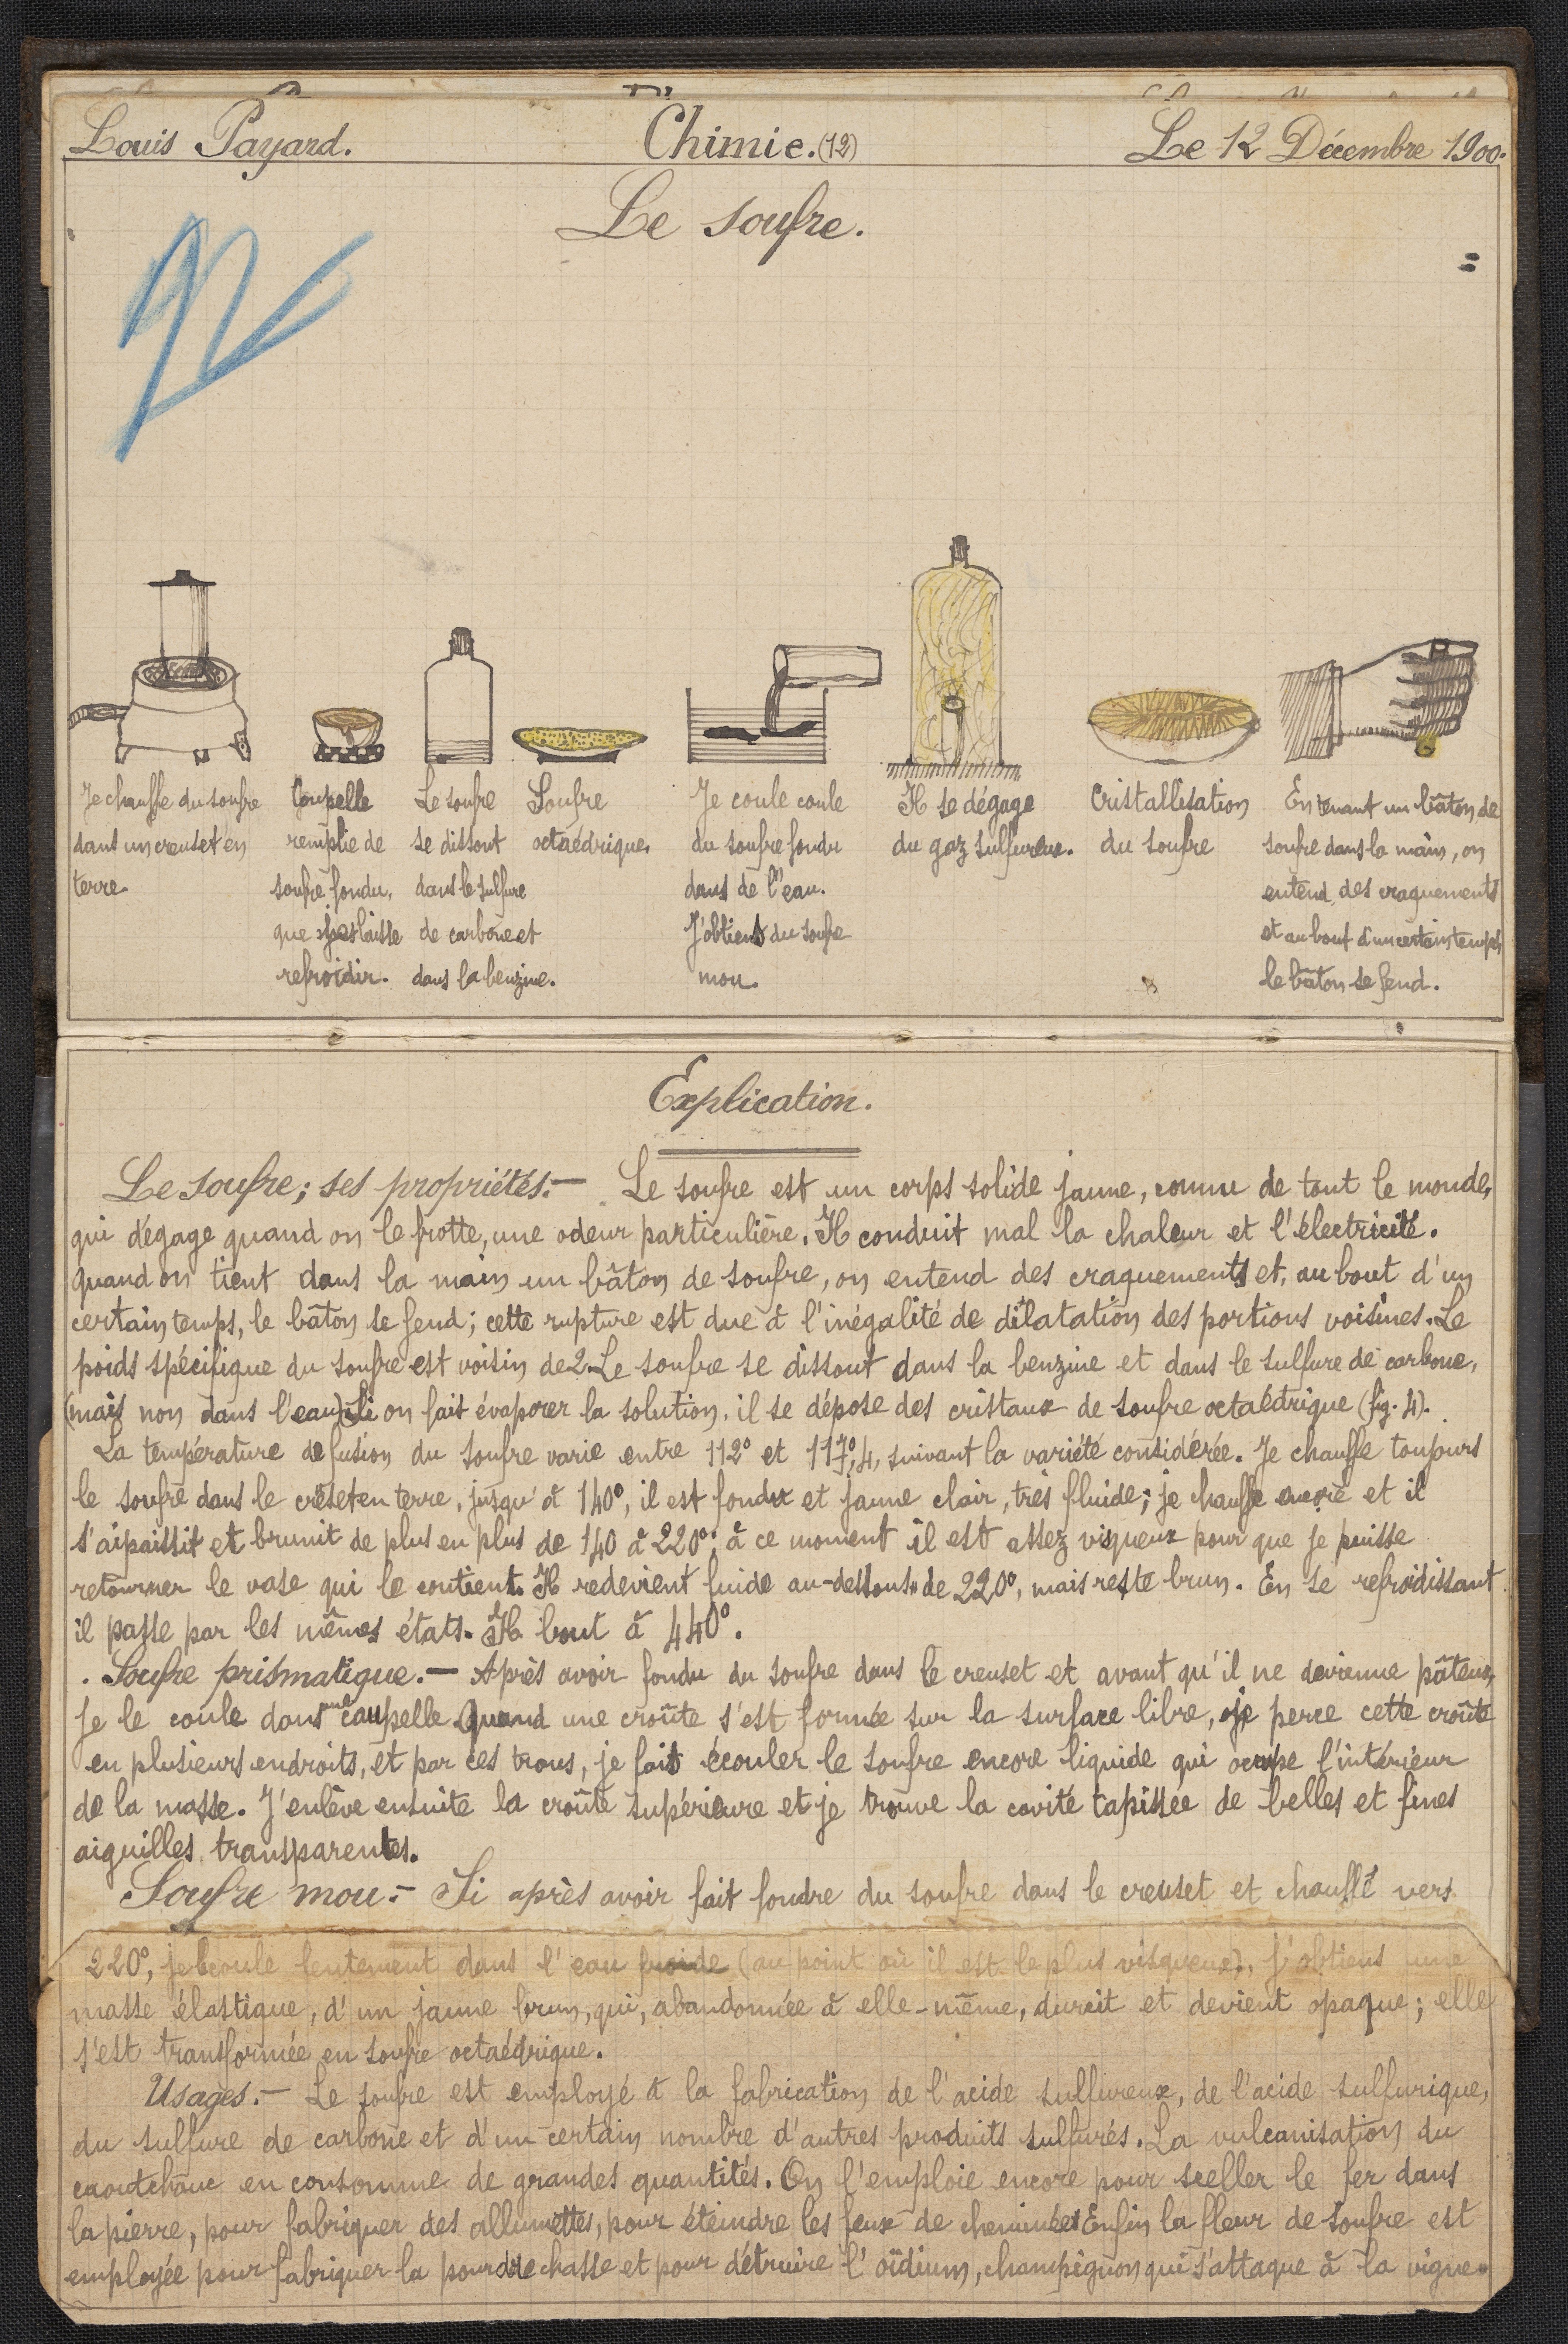 Louis Payard.
Chimie. (12)
Le 12 Décembre 1900.
Le soufre.
Je chauffe du soufre
dans un creuset en
terre.
Coupelle
remplie de
soufre fondu,
que je laisse
refroidir.
Le soufre
se dissout
dans le sulfure
de carbone et
dans la benzine.
Soufre
octaédrique.
Je coule coule
du soufre fondu
dans de l'eau.
J'obtiens du soufre
mou.
Il se dégage
du gaz sulfureux.
Cristallisation
du soufre
En tenant un bâton de
soufre dans la main, on
entend des craquements
et au bout d'un certain temps,
le bâton se fend.
Explication.
Le soufre; ses propriétés.— Le soufre est un corps solide jaune, connu de tout le monde,
qui dégage quand on le frotte, une odeur particulière. Il conduit mal la chaleur et l'électricité.
Quand on tient dans la main un bâton de soufre, on entend des craquements et, au bout d'un
certain temps, le bâton se fend; cette rupture est due à l'inégalité de dilatation des portions voisines. Le
poids spécifique du soufre est voisin de 2. Le soufre se dissout dans la benzine et dans le sulfure de carbone,
(mais non dans l'eau). Si on fait évaporer la solution, il se dépose des cristaux de soufre octaédrique (fig. 4).
La température de fusion du soufre varie entre 112° et 117°,4, suivant la variété considérée. Je chauffe toujours
le soufre dans le creuset en terre, jusqu'à 140°, il est fondu et jaune clair, très fluide; je chauffe encore et il
s'aipaissit et brunit de plus en plus de 140 à 220°; à ce moment il est assez visqueux pour que je puisse
retourner le vase qui le contient. Il redevient fuide au-dessous de 220°, mais reste brun. En se refroidissant
il passe par les mêmes états. Il bout à 440°.
Soufre prismatique.— Après avoir fondu du soufre dans le creuset et avant qu'il ne devienne pâteux,
je le coule dans une caupelle. Quand une croûte s'est formée sur la surface libre, je perce cette croûte
en plusieurs endroits, et par ces trous, je fait écouler le soufre encore liquide qui occupe l'intérieur
de la masse. J'enlève ensuite la croûte supérieure et je trouve la cavité tapissée de belles et fines
aiguilles transparentes.
Soufre mou.— Si après avoir fait fondre du soufre dans le creuset et chauffé vers
220°, je le coule lentement dans l'eau froide (au point où il est le plus visqueux), j'obtiens une
masse élastique, d'un jaune brun, qui, abandonnée à elle-même, durcit et devient opaque; elle
s'est transformée en soufre octaédrique.
Usages.— Le soufre est employé à la fabrication de l'acide sulfureux, de l'acide sulfurique,
du sulfure de carbone et d'un certain nombre d'autres produits sulfurés. La vulcanisation du
caoutchouc en consomme de grandes quantités. On l'emploie encore pour sceller le fer dans
la pierre, pour fabriquer des allumettes, pour éteindre les feux de cheminées. Enfin la fleur de soufre est
employée pour fabriquer la poudre chasse et pour détruire l'oïdium, champignon qui s'attaque à la vigne.